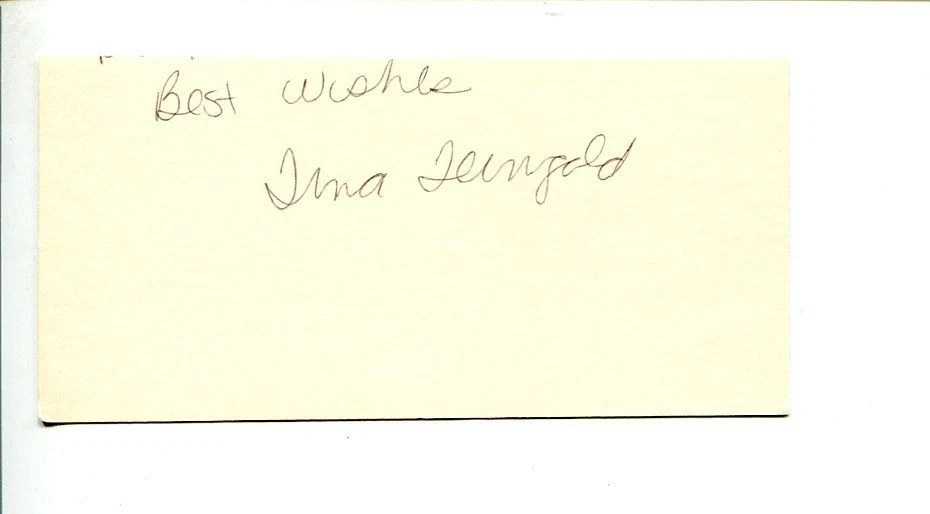 Best Wishes
Tina Feingold